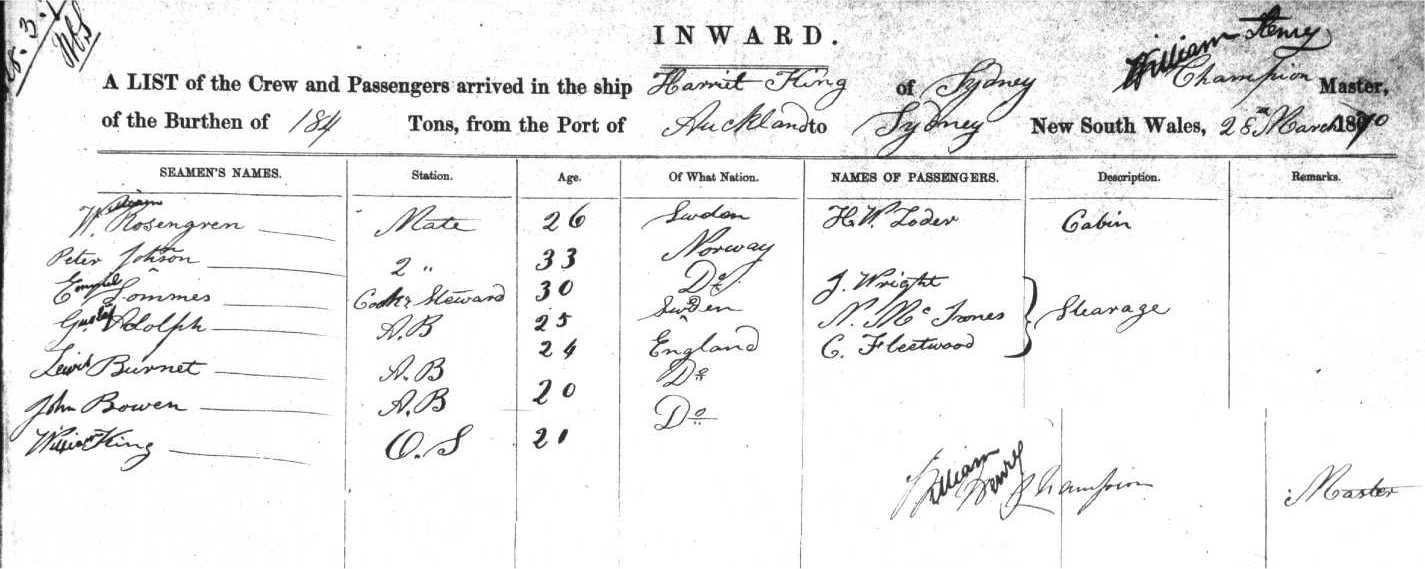 28. 3.
INWARD.
William Henry
A LIST of the Crew and Passengers arrived in the ship Harriet King of Sydney Champion Master,
of the Burthen of 184 Tons, from the Port of Auckland to Sydney New South Wales, 28th March 1870
SEAMEN'S NAMES. Station. Age. Of What Nation. NAMES OF PASSENGERS. Description. Remarks.
William Rosengren Mate 26 Sweden H. W. Loder Cabin
Peter Johnson 2 " 33 Norway
Sommes Cook & Steward 30 Do J. Wright
Gustaf Adolph A.B 25 Sweden N. Mc Irones Stearage
Lewis Burnet A.B 24 England C. Fleetwood
John Bowen A.B 20 Do
William King O.S 21 Do
William Henry Champion Master